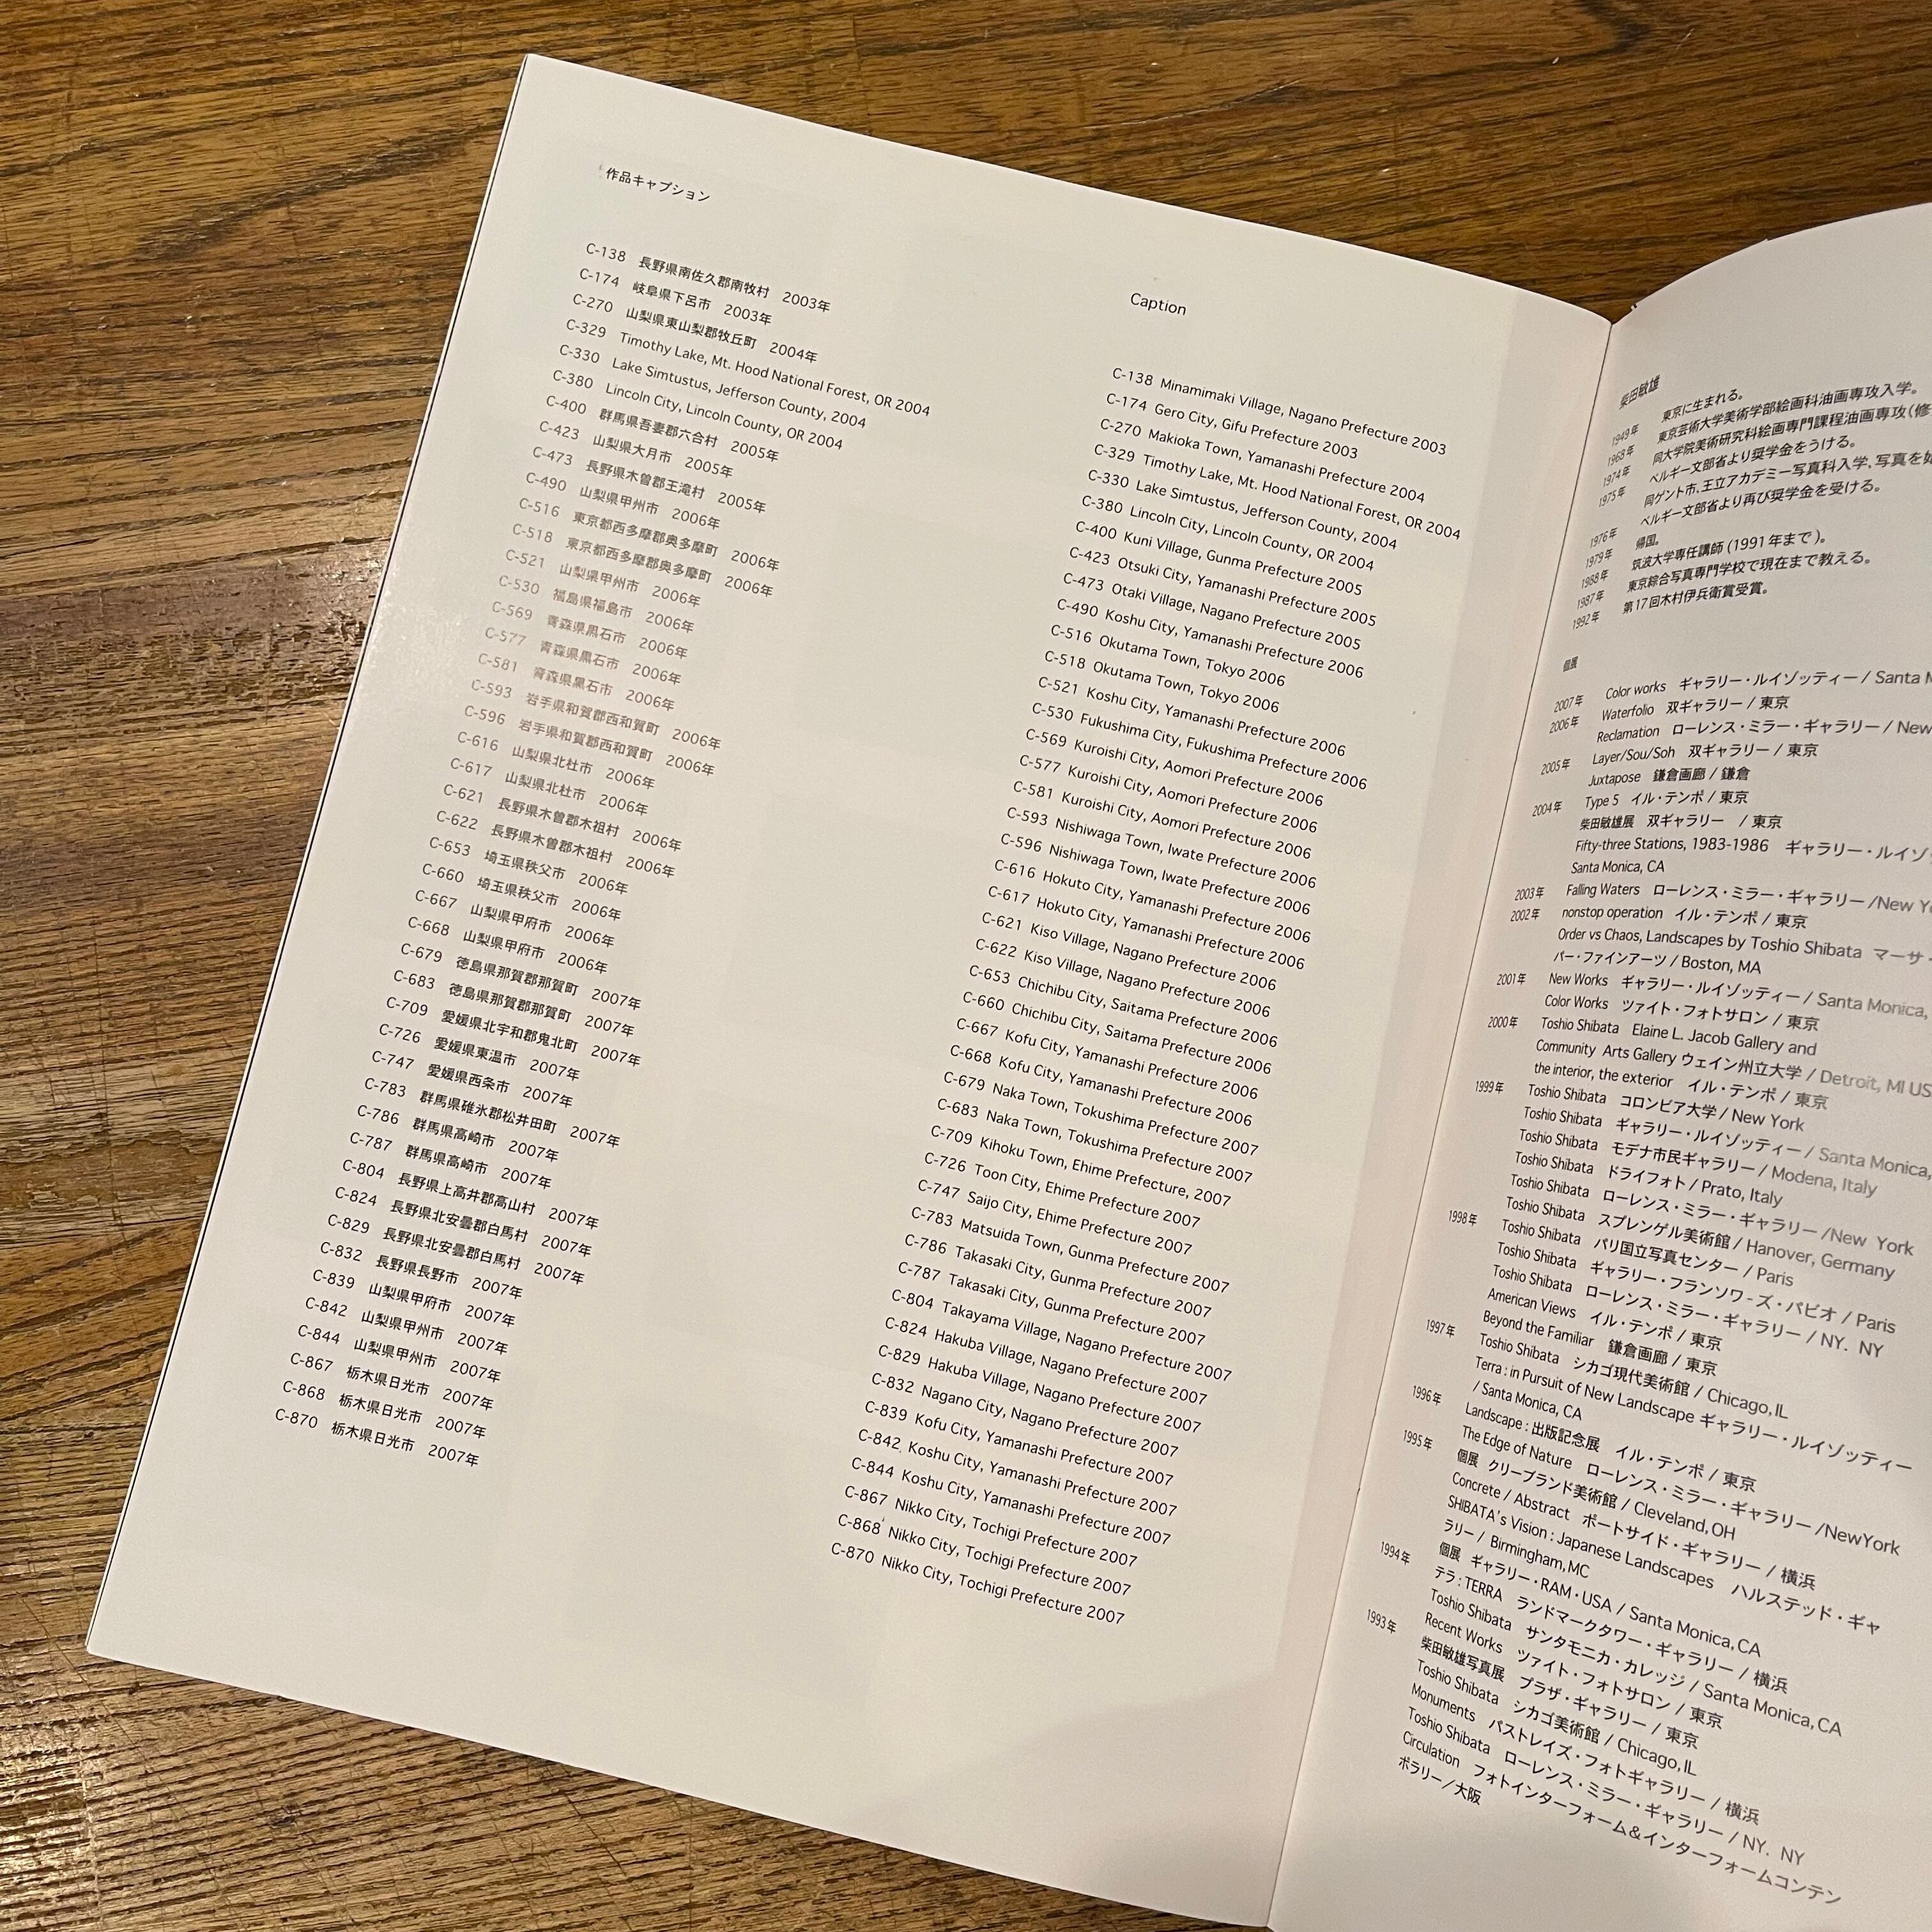 作品キャプション
C-138 長野県南佐久郡南牧村 2003年
C-174 岐阜県下呂市 2003年
C-270 山梨県東山梨郡牧丘町 2004年
C-329 Timothy Lake, Mt. Hood National Forest, OR 2004
C-330 Lake Simtustus, Jefferson County, 2004
C-380 Lincoln City, Lincoln County, OR 2004
C-400 群馬県吾妻郡六合村 2005年
C-423 山梨県大月市 2005年
C-473 長野県木曽郡王滝村 2005年
C-490 山梨県甲州市 2006年
C-516 東京都西多摩郡奥多摩町 2006年
C-518 東京都西多摩郡奥多摩町 2006年
C-521 山梨県甲州市 2006年
C-530 福島県福島市 2006年
C-569 青森県黒石市 2006年
C-577 青森県黒石市 2006年
C-581 青森県黒石市 2006年
C-593 岩手県和賀郡西和賀町 2006年
C-596 岩手県和賀郡西和賀町 2006年
C-616 山梨県北杜市 2006年
C-617 山梨県北杜市 2006年
C-621 長野県木曽郡木祖村 2006年
C-622 長野県木曽郡木祖村 2006年
C-653 埼玉県秩父市 2006年
C-660 埼玉県秩父市 2006年
C-667 山梨県甲府市 2006年
C-668 山梨県甲府市 2006年
C-679 徳島県那賀郡那賀町 2007年
C-683 徳島県那賀郡那賀町 2007年
C-709 愛媛県北宇和郡鬼北町 2007年
C-726 愛媛県東温市 2007年
C-747 愛媛県西条市 2007年
C-783 群馬県碓氷郡松井田町 2007年
C-786 群馬県高崎市 2007年
C-787 群馬県高崎市 2007年
C-804 長野県上高井郡高山村 2007年
C-824 長野県北安曇郡白馬村 2007年
C-829 長野県北安曇郡白馬村 2007年
C-832 長野県長野市 2007年
C-839 山梨県甲府市 2007年
C-842 山梨県甲州市 2007年
C-844 山梨県甲州市 2007年
C-867 栃木県日光市 2007年
C-868 栃木県日光市 2007年
C-870 栃木県日光市 2007年
Caption
C-138 Minamimaki Village, Nagano Prefecture 2003
C-174 Gero City, Gifu Prefecture 2003
C-270 Makioka Town, Yamanashi Prefecture 2004
C-329 Timothy Lake, Mt. Hood National Forest, OR 2004
C-330 Lake Simtustus, Jefferson County, 2004
C-380 Lincoln City, Lincoln County, OR 2004
C-400 Kuni Village, Gunma Prefecture 2005
C-423 Otsuki City, Yamanashi Prefecture 2005
C-473 Otaki Village, Nagano Prefecture 2005
C-490 Koshu City, Yamanashi Prefecture 2006
C-516 Okutama Town, Tokyo 2006
C-518 Okutama Town, Tokyo 2006
C-521 Koshu City, Yamanashi Prefecture 2006
C-530 Fukushima City, Fukushima Prefecture 2006
C-569 Kuroishi City, Aomori Prefecture 2006
C-577 Kuroishi City, Aomori Prefecture 2006
C-581 Kuroishi City, Aomori Prefecture 2006
C-593 Nishiwaga Town, Iwate Prefecture 2006
C-596 Nishiwaga Town, Iwate Prefecture 2006
C-616 Hokuto City, Yamanashi Prefecture 2006
C-617 Hokuto City, Yamanashi Prefecture 2006
C-621 Kiso Village, Nagano Prefecture 2006
C-622 Kiso Village, Nagano Prefecture 2006
C-653 Chichibu City, Saitama Prefecture 2006
C-660 Chichibu City, Saitama Prefecture 2006
C-667 Kofu City, Yamanashi Prefecture 2006
C-668 Kofu City, Yamanashi Prefecture 2006
C-679 Naka Town, Tokushima Prefecture 2007
C-683 Naka Town, Tokushima Prefecture 2007
C-709 Kihoku Town, Ehime Prefecture, 2007
C-726 Toon City, Ehime Prefecture 2007
C-747 Saijo City, Ehime Prefecture 2007
C-783 Matsuida Town, Gunma Prefecture 2007
C-786 Takasaki City, Gunma Prefecture 2007
C-787 Takasaki City, Gunma Prefecture 2007
C-804 Takayama Village, Nagano Prefecture 2007
C-824 Hakuba Village, Nagano Prefecture 2007
C-829 Hakuba Village, Nagano Prefecture 2007
C-832 Nagano City, Nagano Prefecture 2007
C-839 Kofu City, Yamanashi Prefecture 2007
C-842 Koshu City, Yamanashi Prefecture 2007
C-844 Koshu City, Yamanashi Prefecture 2007
C-867 Nikko City, Tochigi Prefecture 2007
C-868 Nikko City, Tochigi Prefecture 2007
C-870 Nikko City, Tochigi Prefecture 2007
柴田敏雄
1949年 東京に生まれる。
1968年 東京芸術大学美術学部絵画科油画専攻入学。
1974年 同大学院美術研究科絵画専門課程油画専攻(修
1975年 ベルギー文部省より奨学金をうける。
同ゲント市、王立アカデミー写真科入学、写真を始
1976年 ベルギー文部省より再び奨学金を受ける。
1979年 帰国。
1988年 筑波大学専任講師(1991年まで)。
1987年 東京綜合写真専門学校で現在まで教える。
1992年 第17回木村伊兵衛賞受賞。
個展
2007年 Color works ギャラリー・ルイゾッティー / Santa M
2006年 Waterfolio 双ギャラリー / 東京
Reclamation ローレンス・ミラー・ギャラリー / New
2005年 Layer/Sou/Soh 双ギャラリー / 東京
Juxtapose 鎌倉画廊 / 鎌倉
2004年 Type 5 イル・テンポ / 東京
柴田敏雄展 双ギャラリー / 東京
Fifty-three Stations, 1983-1986 ギャラリー・ルイゾ
Santa Monica, CA
2003年 Falling Waters ローレンス・ミラー・ギャラリー /New Y
2002年 nonstop operation イル・テンポ / 東京
Order vs Chaos, Landscapes by Toshio Shibata マーサ・
パー・ファインアーツ / Boston, MA
2001年 New Works ギャラリー・ルイゾッティー / Santa Monica,
Color Works ツァイト・フォトサロン / 東京
2000年 Toshio Shibata Elaine L. Jacob Gallery and
Community Arts Gallery ウェイン州立大学 / Detroit, MI US
the interior, the exterior イル・テンポ / 東京
1999年 Toshio Shibata コロンビア大学 / New York
Toshio Shibata ギャラリー・ルイゾッティー / Santa Monica,
Toshio Shibata モデナ市民ギャラリー / Modena, Italy
Toshio Shibata ドライフォト / Prato, Italy
Toshio Shibata ローレンス・ミラー・ギャラリー /New York
1998年 Toshio Shibata スプレンゲル美術館 / Hanover, Germany
Toshio Shibata パリ国立写真センター / Paris
Toshio Shibata ギャラリー・フランソワ-ズ・パビオ / Paris
Toshio Shibata ローレンス・ミラー・ギャラリー / NY. NY
American Views イル・テンポ / 東京
1997年 Beyond the Familiar 鎌倉画廊 / 東京
Toshio Shibata シカゴ現代美術館 / Chicago, IL
Terra : in Pursuit of New Landscape ギャラリー・ルイゾッティー
1996年 / Santa Monica, CA
Landscape : 出版記念展 イル・テンポ / 東京
1995年 The Edge of Nature ローレンス・ミラー・ギャラリー /NewYork
個展 クリーブランド美術館 / Cleveland, OH
Concrete / Abstract ポートサイド・ギャラリー / 横浜
SHIBATA's Vision : Japanese Landscapes ハルステッド・ギャ
ラリー / Birmingham, MC
1994年 個展 ギャラリー・RAM・USA / Santa Monica, CA
テラ : TERRA ランドマークタワー・ギャラリー / 横浜
Toshio Shibata サンタモニカ・カレッジ / Santa Monica, CA
1993年 Recent Works ツァイト・フォトサロン / 東京
柴田敏雄写真展 プラザ・ギャラリー / 東京
Toshio Shibata シカゴ美術館 / Chicago, IL
Monuments パストレイズ・フォトギャラリー / 横浜
Toshio Shibata ローレンス・ミラー・ギャラリー / NY. NY
Circulation フォトインターフォーム&インターフォームコンテン
ポラリー／大阪